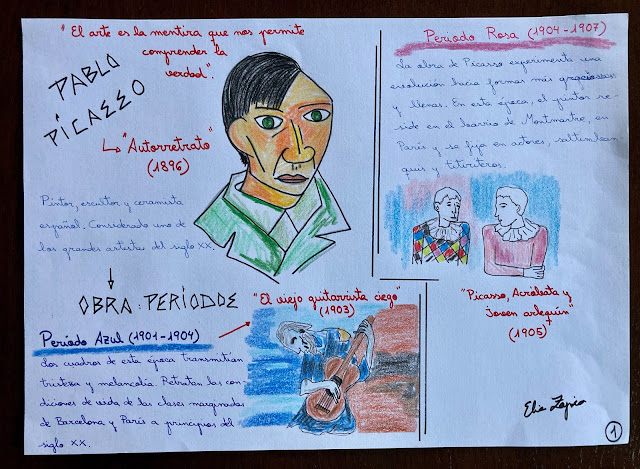 "El arte es la mentira que nos permite
comprender la
verdad".
PABLO
PICASSO
"Autorretrato"
(1896)
Pintor, escultor y ceramista
español. Considerado uno de
los grandes artistas del siglo XX.
OBRA: PERIODOS
Periodo Azul (1901-1904)
Los cuadros de esta época transmitían
tristeza y melancolía. Retratan las con-
diciones de vida de las clases marginadas
de Barcelona y París a principios del
siglo XX.
"El viejo guitarrista ciego"
(1903)
Periodo Rosa (1904-1907)
La obra de Picasso experimenta una
evolución hacia formas más graciosas
y llenas. En esta época, el pintor re-
side en el barrio de Montmartre, en
París y se fija en actores, saltimban
quis y titiriteros.
"Picasso, Acróbata y
joven arlequín"
(1905)
1